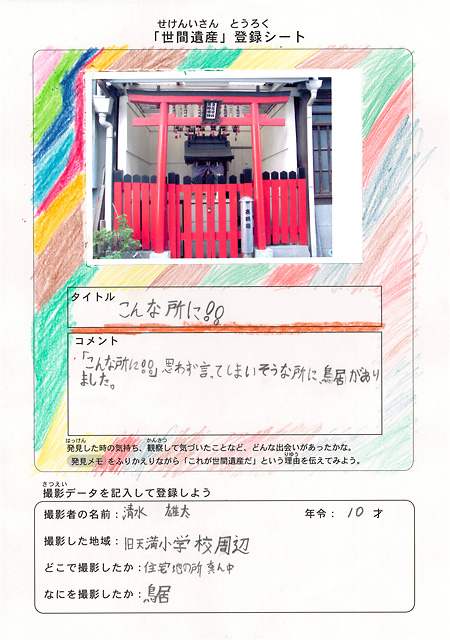 せけんいさん とうろく
「世間遺産」登録シート
タイトル
こんな所に!!
コメント
「こんな所に!!」思わず言ってしまいそうな所に、鳥居があり
ました。
はっけん かんさつ
発見した時の気持ち、観察して気づいたことなど、どんな出会いがあったかな。
りゆう
発見メモ をふりかえりながら「これが世間遺産だ」という理由を伝えてみよう。
さつえい
撮影データを記入して登録しよう
撮影者の名前:清水 雄太 年令:10才
撮影した地域:旧天満小学校周辺
どこで撮影したか:住宅地の所真ん中
なにを撮影したか:鳥居